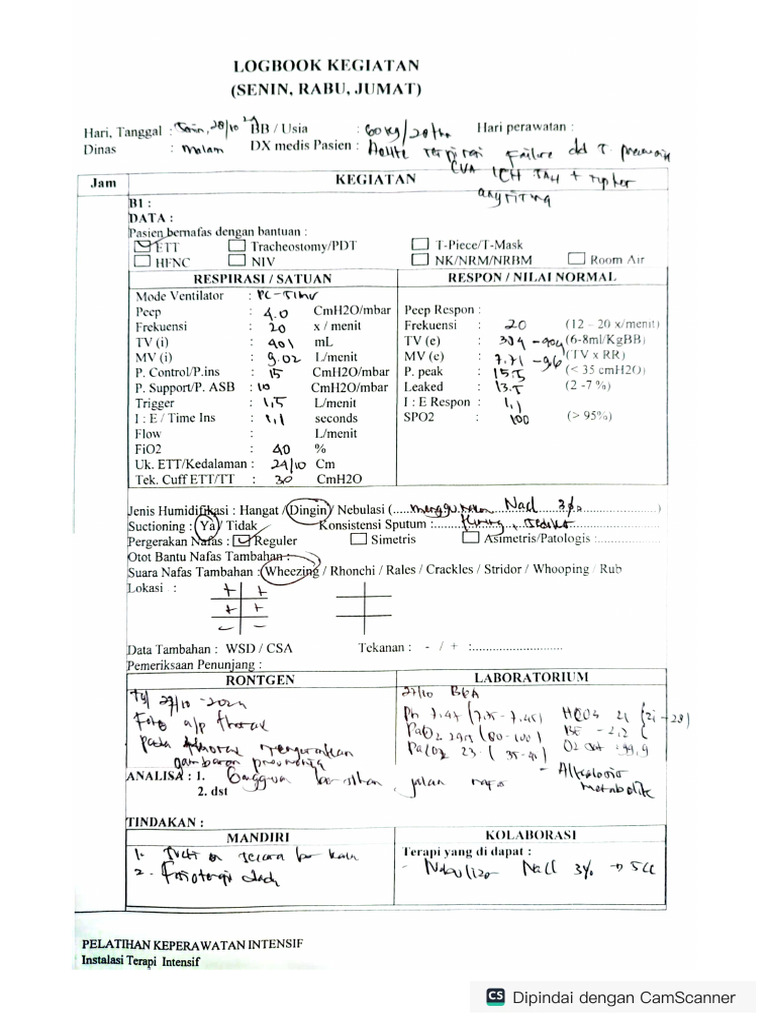 LOGBOOK KEGIATAN
(SENIN, RABU, JUMAT)
Hari, Tanggal : Senin, 28/10 24 BB / Usia : 60 kg/28 thn Hari perawatan :
Dinas : malam DX medis Pasien : Acute respirasi Failure dd T. pneumonia
CVA ICH IVH + rupter
Jam KEGIATAN
B1 :
DATA :
Pasien bernafas dengan bantuan :
ETT Tracheostomy/PDT T-Piece/T-Mask
HFNC NIV NK/NRM/NRBM Room Air
RESPIRASI / SATUAN RESPON / NILAI NORMAL
Mode Ventilator : PC-
Peep : 4.0 CmH2O/mbar Peep Respon :
Frekuensi : 20 x / menit Frekuensi : 20 (12 – 20 x/menit)
TV (i) : 401 mL TV (e) : (6-8ml/KgBB)
MV (i) : 9.02 L/menit MV (e) : 7.71 – 9.6 (TV x RR)
P. Control/P.ins : 15 CmH2O/mbar P. peak : 15.5 (< 35 cmH2O)
P. Support/P. ASB : 10 CmH2O/mbar Leaked : 13.5 (2 -7 %)
Trigger : 1,5 L/menit I : E Respon : 1,1
I : E / Time Ins : 1,1 seconds SPO2 : 100 (> 95%)
Flow : L/menit
FiO2 : 40 %
Uk. ETT/Kedalaman : 24/10 Cm
Tek. Cuff ETT/TT : 30 CmH2O
Jenis Humidifikasi : Hangat / Dingin / Nebulasi (.....menggunakan Nacl 3%..........)
Suctioning : Ya / Tidak Konsistensi Sputum :
Pergerakan Nafas : Reguler Simetris Asimetris/Patologis :
Otot Bantu Nafas Tambahan :
Suara Nafas Tambahan : Wheezing / Rhonchi / Rales / Crackles / Stridor / Whooping / Rub
Lokasi :
+ +
+ +
– –
Data Tambahan : WSD / CSA Tekanan : - / + :
Pemeriksaan Penunjang :
RONTGEN LABORATORIUM
Tgl 27/10 -2024
Foto a/p thorax
pada thorax
gambaran pneumonia
27/10 BGA
Ph 7.47 (7.35 - 7.45) HCO3 21 (21 - 28)
PaO2 (80 - 100) BE -2,2
PaCO2 23. O2 Sat : 99,9
– Alkalosis
metabolik
ANALISA : 1. Gangguan bersihan jalan nafas
2. dst
TINDAKAN :
MANDIRI KOLABORASI
1. secara berkala
2. Fisioterapi dada
Terapi yang di dapat :
- Nebulizer Nacl 3% → 5 cc
PELATIHAN KEPERAWATAN INTENSIF
Instalasi Terapi Intensif
CS Dipindai dengan CamScanner